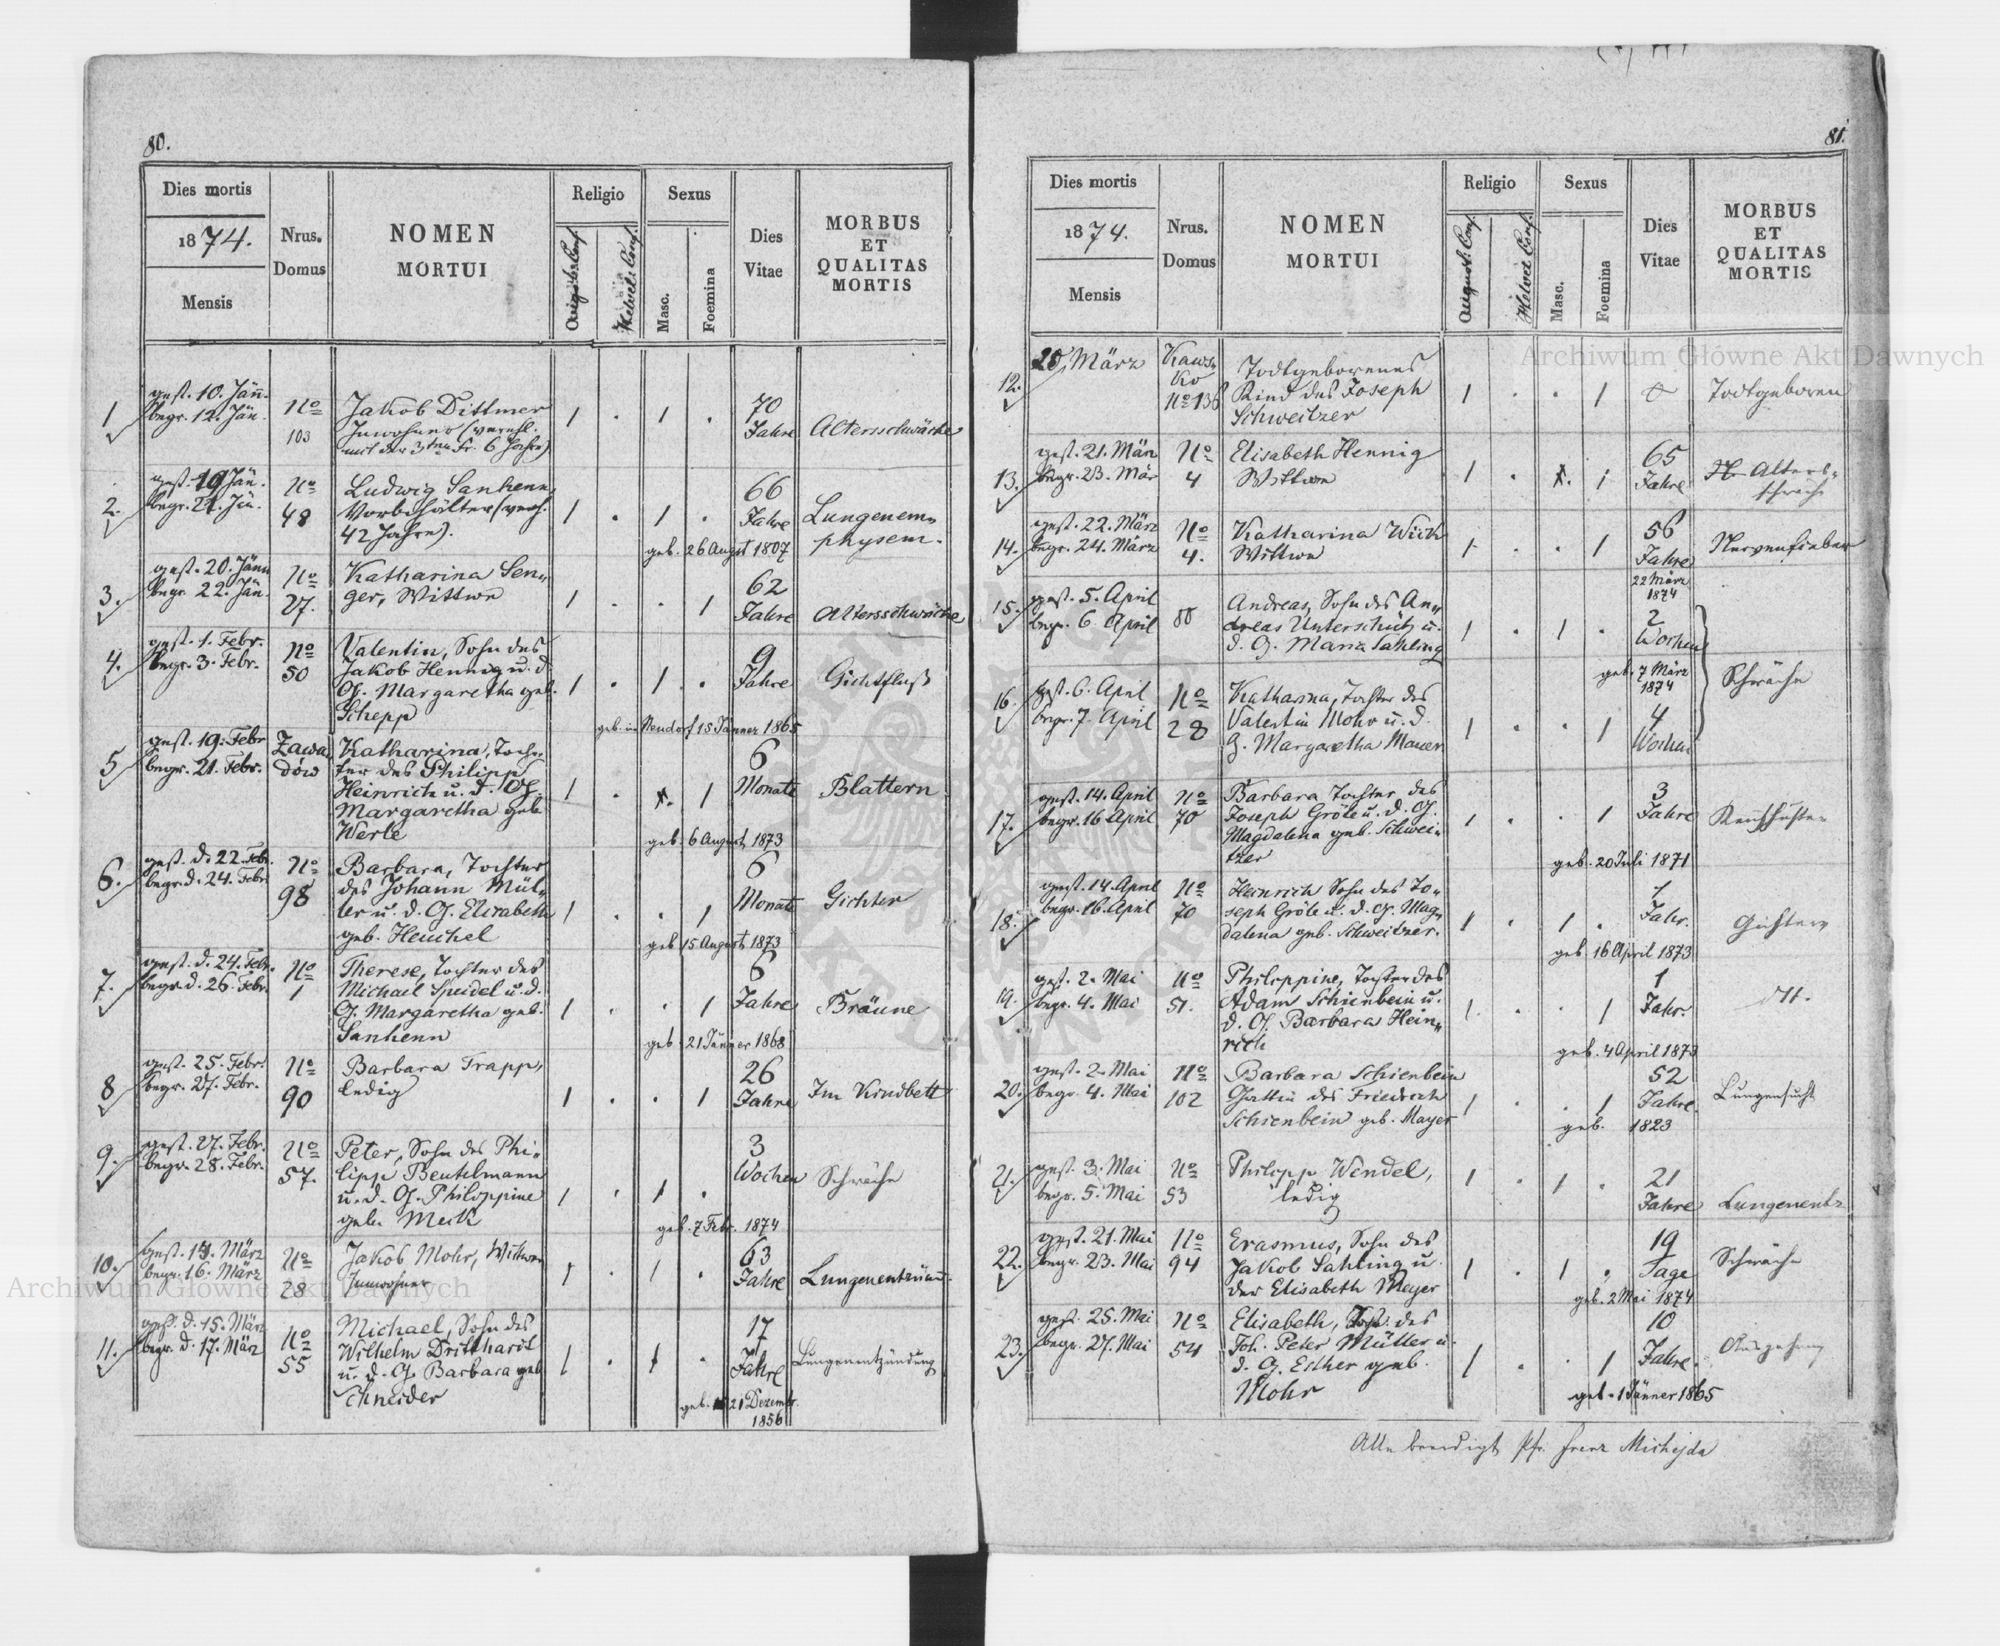 80.
Dies mortis
1874.
Mensis
Nrus.
Domus
NOMEN
MORTUI
Religio
August. Conf.
Helvet. Conf.
Sexus
Masc.
Foemina
Dies
Vitae
MORBUS
ET
QUALITAS
MORTIS
1
gest. 10. Jän.
begr. 12. Jän.
No
103
Jakob Dittmer
Inwohner (verehl.
mit der 3ten Fr. 6 Jahre)
1 . 1 .
70
Jahre
Altersschwäche
2.
gest. 19 Jän.
begr. 21. Jän.
No
48
Ludwig Sanhenn,
Vorbehälter (vereh.
42 Jahre).
1 . 1 .
66
Jahre
geb. 26 August 1807
Lungenem-
physem.
3.
gest. 20. Jänn
begr. 22. Jän.
No
27.
Katharina Sen-
ger, Wittwe
1 . . 1
62
Jahre
Altersschwäche
4.
gest. 1. Febr.
begr. 3. Febr.
No
50
Valentin, Sohn des
Jakob Hennig u. d.
G. Margaretha geb.
Schepp
1 . 1 .
9
Jahre
geb. in Neudorf 15 Jänner 1865
Gichtfluß
5
gest. 19. Febr
begr. 21. Febr.
Zawa
dów
Katharina, Toch-
ter des Philipp
Heinrich u. d. G.
Margaretha geb.
Werle
1 . . 1
6
Monate
geb. 6 August 1873
Blattern
6.
gest. d. 22. Febr.
begr. d. 24. Febr.
No
98
Barbara, Tochter
des Johann Mül-
ler u. d. G. Elisabeth
geb. Heuchel
1 . . 1
6
Monate
geb 15 August 1873
Gichter
7.
gest. d. 24. Febr.
begr. d. 26. Febr.
No
1
Therese, Tochter des
Michael Speidel u. d.
G. Margaretha geb.
Sanhenn
1 . . 1
6
Jahre
geb. 21 Jänner 1868
Bräune
8
gest. 25. Febr.
begr. 27. Febr.
No
90
Barbara Trapp,
ledig
1 . . 1
26
Jahre
Im Kindbett
9.
gest. 27. Febr.
begr. 28. Febr.
No
57.
Peter, Sohn des Phi-
lipp Beutelmann
u. d. G. Philippine
geb. Meck
1 . 1 .
3
Wochen
geb. 7 Febr. 1874
Schwäche
10.
gest. 14. März
begr. 16. März
No
28
Jakob Mohr, Witwer
Innwohner
1 . 1 .
63
Jahre
Lungenentzünd.
11.
gest. d. 15. März
begr. d. 17. März
No
55
Michael, Sohn des
Wilhelm Dritthardt
u. d. G. Barbara geb.
Schneider
1 . 1 .
17
Jahre
geb. 21 Dezembr.
1856
Lungenentzündung
81.
Dies mortis
1874.
Mensis
Nrus.
Domus
NOMEN
MORTUI
Religio
August. Conf.
Helvet. Conf.
Sexus
Masc.
Foemina
Dies
Vitae
MORBUS
ET
QUALITAS
MORTIS
12.
20. März
Kaws-
ko
No 136
Todtgeborenes
Kind des Joseph
Schweitzer
1 . . 1
Todtgeboren
13.
gest. 21. März
begr. 23. Mär
No
4
Elisabeth Hennig
Wittwe
1 . . 1
65
Jahre
Alters-
schwäche
14.
gest. 22. März
begr. 24. März
No
4.
Katharina Wück
Wittwe
1 . . 1
56
Jahre
Nervenfieber
15.
gest. 5. April
begr. 6 April
88
Andreas, Sohn des An-
dreas Unterschütz u.
d. G. Maria Sahling
1 . 1 .
22 März
1874
2
Wochen
16.
gest. 6. April
begr. 7. April
No
28
Katharina, Tochter des
Valentin Mohr u. d.
G. Margaretha Mauer
1 . . 1
geb. 7 März
1874
4
Wochen
Schwäche
17.
gest. 14. April
begr. 16 April
No
70
Barbara Tochter des
Joseph Gröle u. d. G.
Magdalena geb. Schwei-
tzer
1 . . 1
3
Jahre
geb. 20 Juli 1871
Keuchhusten
18.
gest. 14. April
begr. 16. April
No
70
Heinrich Sohn des Jo-
seph Gröle u. d. G. Mag-
dalena geb. Schweitzer.
1 . 1 .
1
Jahr.
geb. 16 April 1873
Gichter
19.
gest. 2. Mai
begr. 4. Mai
No
51.
Philippine, Tochter des
Adam Schienbein u.
d. G. Barbara Hein-
rich
1 . . 1
1
Jahr.
geb. 4 April 1873
dtt.
20.
gest. 2. Mai
begr. 4. Mai
No
102
Barbara Schienbein
Gattin des Friedrich
Schienbein geb. Mayer
1 . . 1
52
Jahre.
geb. 1823
Lungensucht
21.
gest. 3. Mai
begr. 5. Mai
No
53
Philipp Wendel,
ledig
1 . 1 .
21
Jahre
Lungenentz
22.
gest. 21. Mai
begr. 23. Mai
No
94
Erasmus, Sohn des
Jakob Sahling u.
der Elisabeth Meyer
1 . 1 .
19
Tage
geb. 2 Mai 1874
Schwäche
23.
gest. 25. Mai
begr. 27. Mai
No
54
Elisabeth, Tocht. des
Joh. Peter Müller u.
d. G. Esther geb.
Mohr
1 . . 1
10
Jahre.
geb. 1 Jänner 1865
Auszehrung
Alle beerdigt Pfr. Franz Michejda
Archiwum Główne Akt Dawnych
Archiwum Główne Akt Dawnych